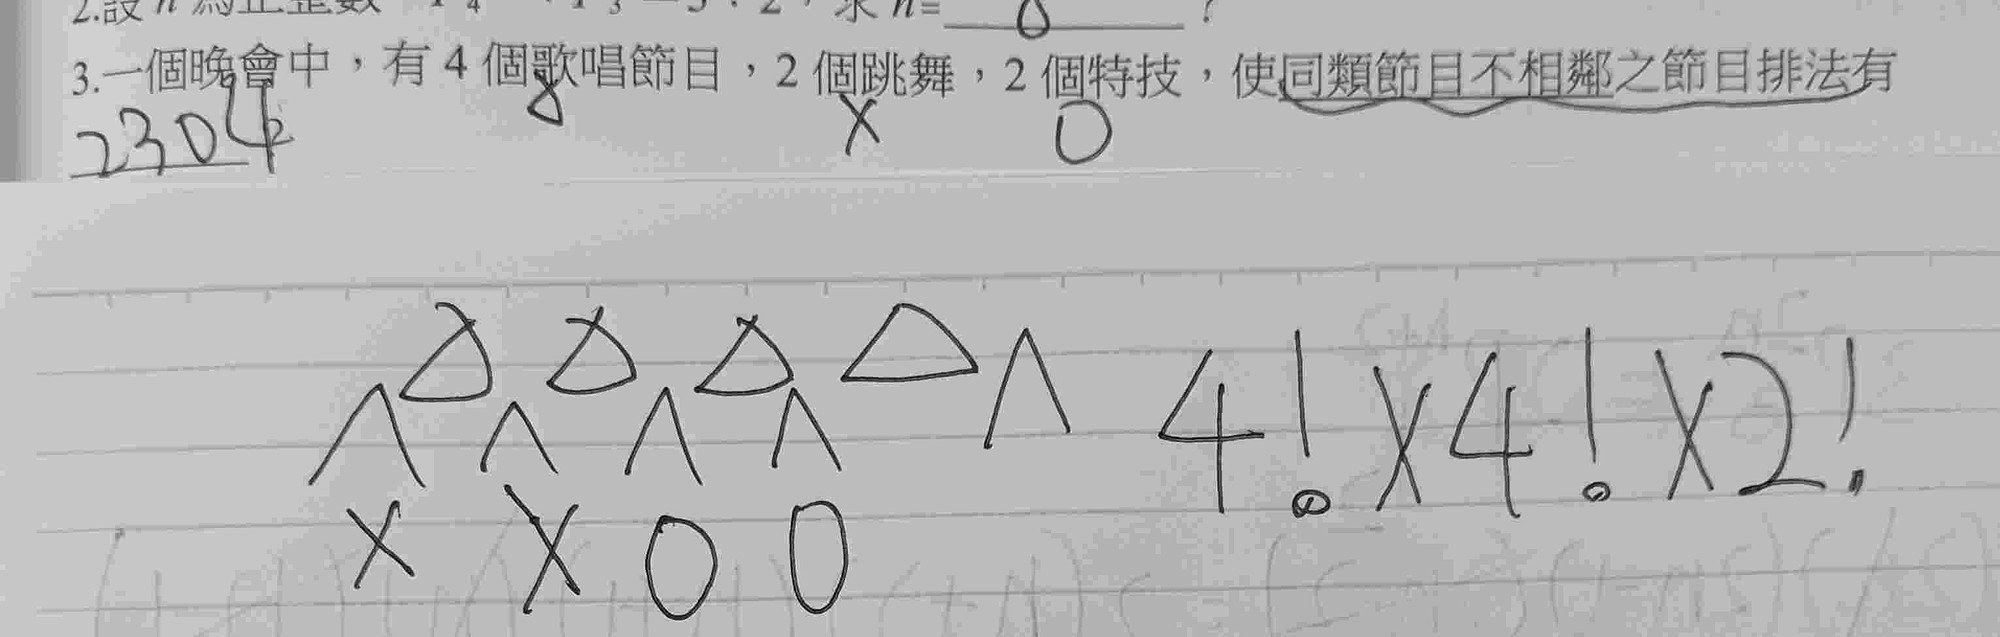 2.設 n 為正整數
求 n= 8 ?
3.一個晚會中，有 4 個歌唱節目，2 個跳舞，2 個特技，使同類節目不相鄰之節目排法有
2304
△ X O
△ △ △ △
∧ ∧ ∧ ∧ ∧
X X O O
4! X 4! X 2!